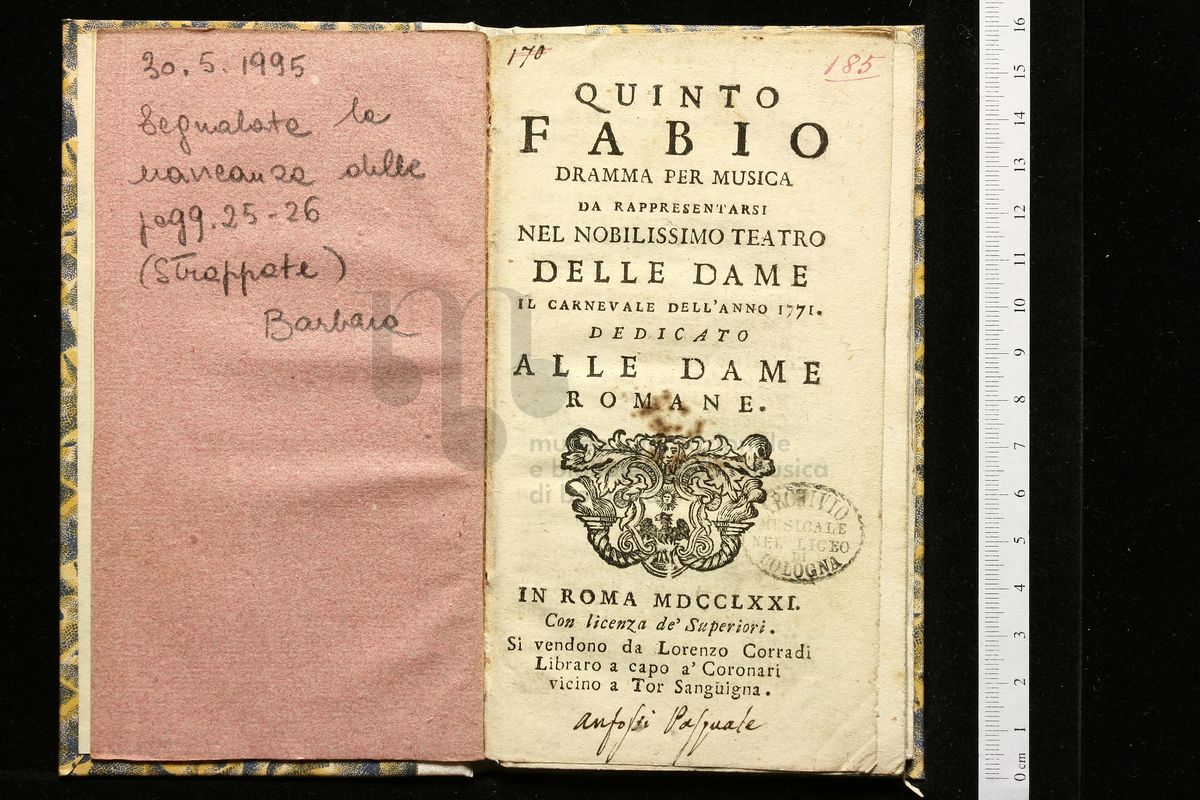 30.5.1995
Segnalata la
mancanza delle
pagg. 25-26
(strappate)
Barbara
170
185
QUINTO
FABIO
DRAMMA PER MUSICA
DA RAPPRESENTARSI
NEL NOBILISSIMO TEATRO
DELLE DAME
IL CARNEVALE DELL'ANNO 1771.
DEDICATO
ALLE DAME
ROMANE.
ARCHIVIO
MUSICALE
NEL LICEO
DI
BOLOGNA
IN ROMA MDCCLXXI.
Con licenza de' Superiori.
Si vendono da Lorenzo Corradi
Libraro a capo a' Coronari
vicino a Tor Sangüigna.
Anfossi Pasquale
0 cm 1 2 3 4 5 6 7 8 9 10 11 12 13 14 15 16